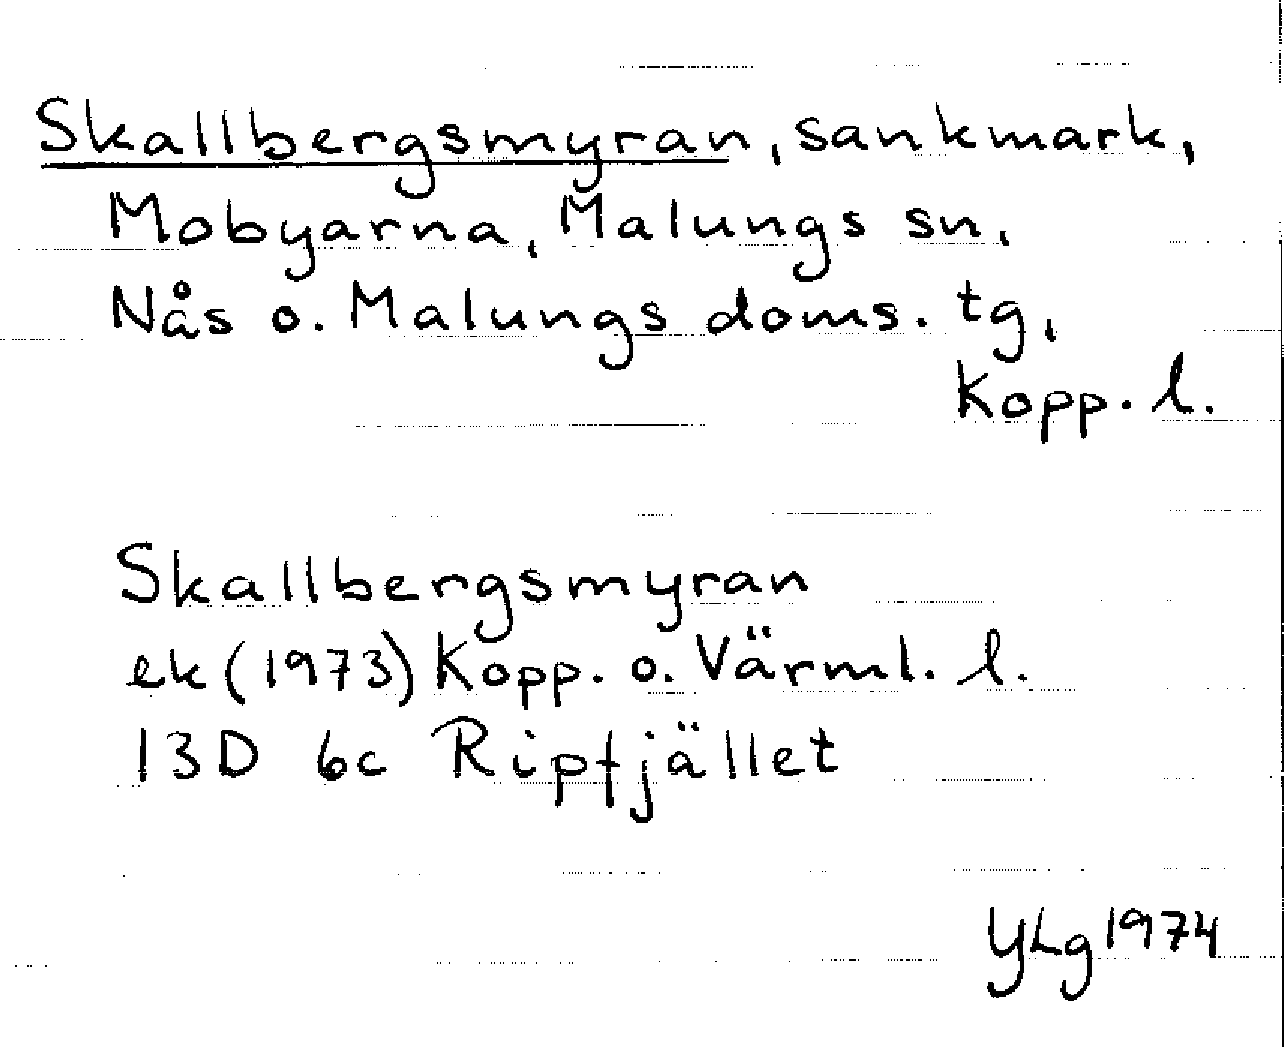 Skallbergsmyran, sankmark,
Mobyarna, Malungs sn,
Nås o. Malungs doms. tg,
Kopp. l.
Skallbergsmyran
ek (1973) Kopp. o. Värml. l.
13D 6c Ripfjället
YLg 1974